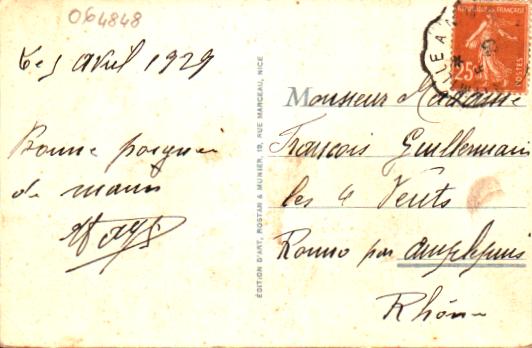 064848
Le 3 avril 1929
Bonne poignée
de main
ÉDITION D'ART, ROSTAN & MUNIER, 19, RUE MARCEAU, NICE
RÉPUBLIQUE FRANÇAISE
25c
POSTES
Monsieur Madame
François Guillermain
les 4 Vents
Ronno par Amplepuis
Rhône